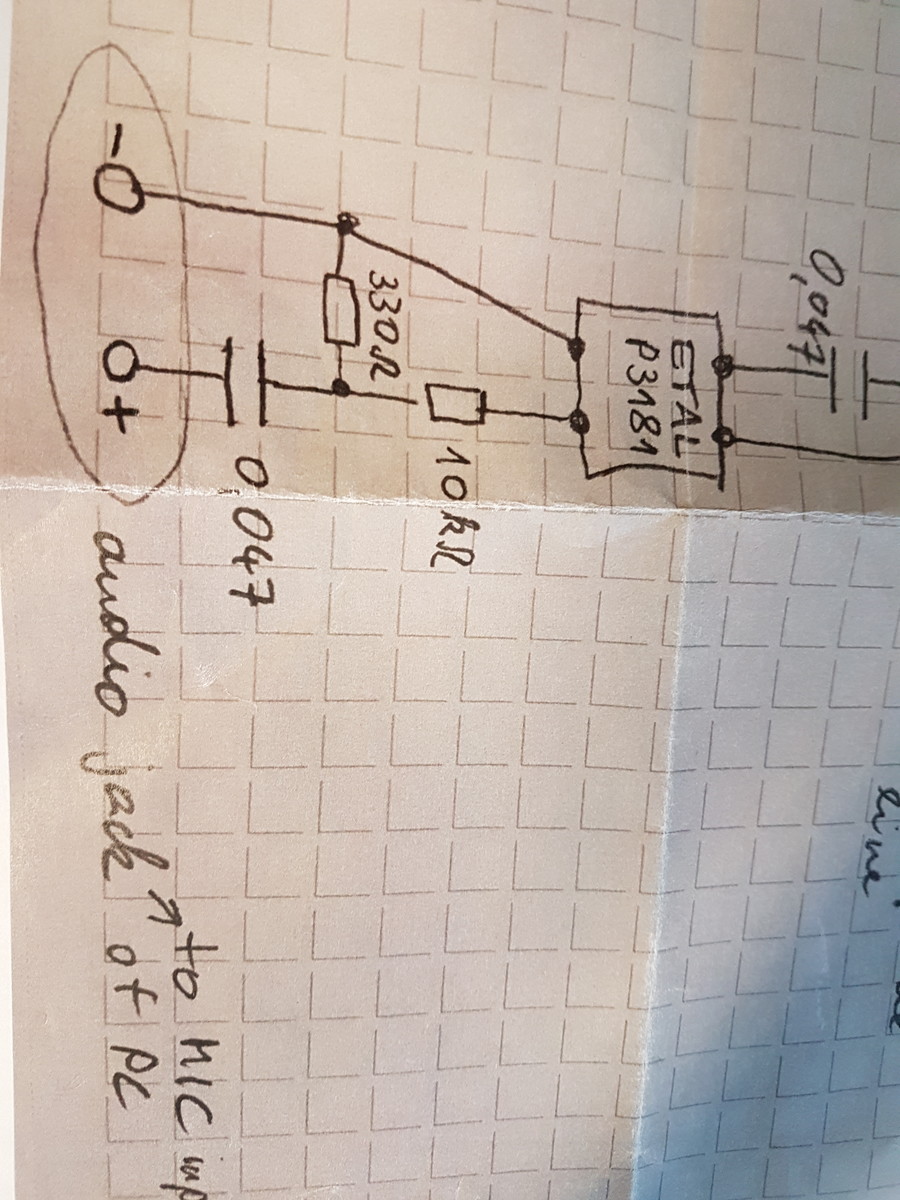 0,047
line
ETAL
P3181
10kΩ
330Ω
0,047
to MIC inp
- +
audio jack of PC